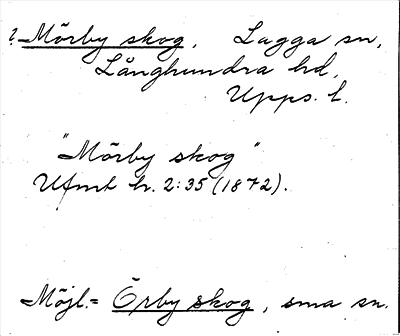 ? Mörby skog, Lagga sn,
Långhundra hd,
Upps. l.
"Mörby skog"
Ufmt h. 2:35 (1872).
Möjl. = Örby skog, sma sn.